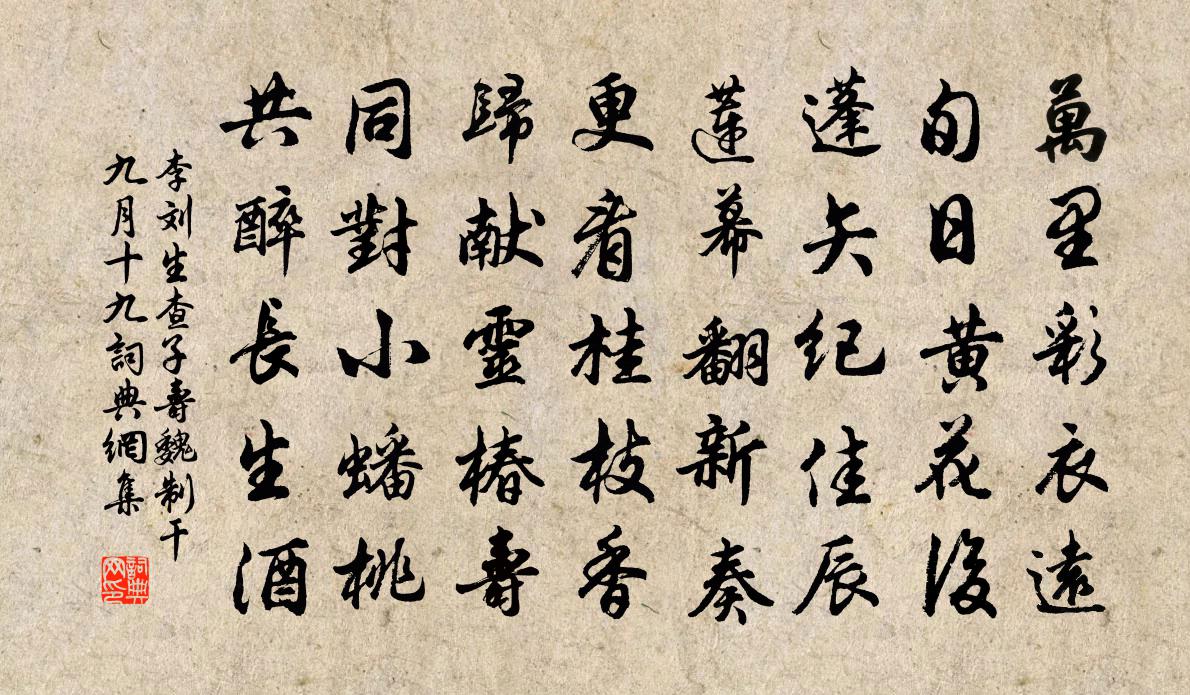 萬里彩衣遠
旬日黄花後
蓬矢纪佳辰
蓮幕翻新奏
更看桂枝香
歸献靈椿壽
同對小蟠桃
共醉長生酒
李刘生查子壽魏制干
九月十九詞典網集
詞典网印